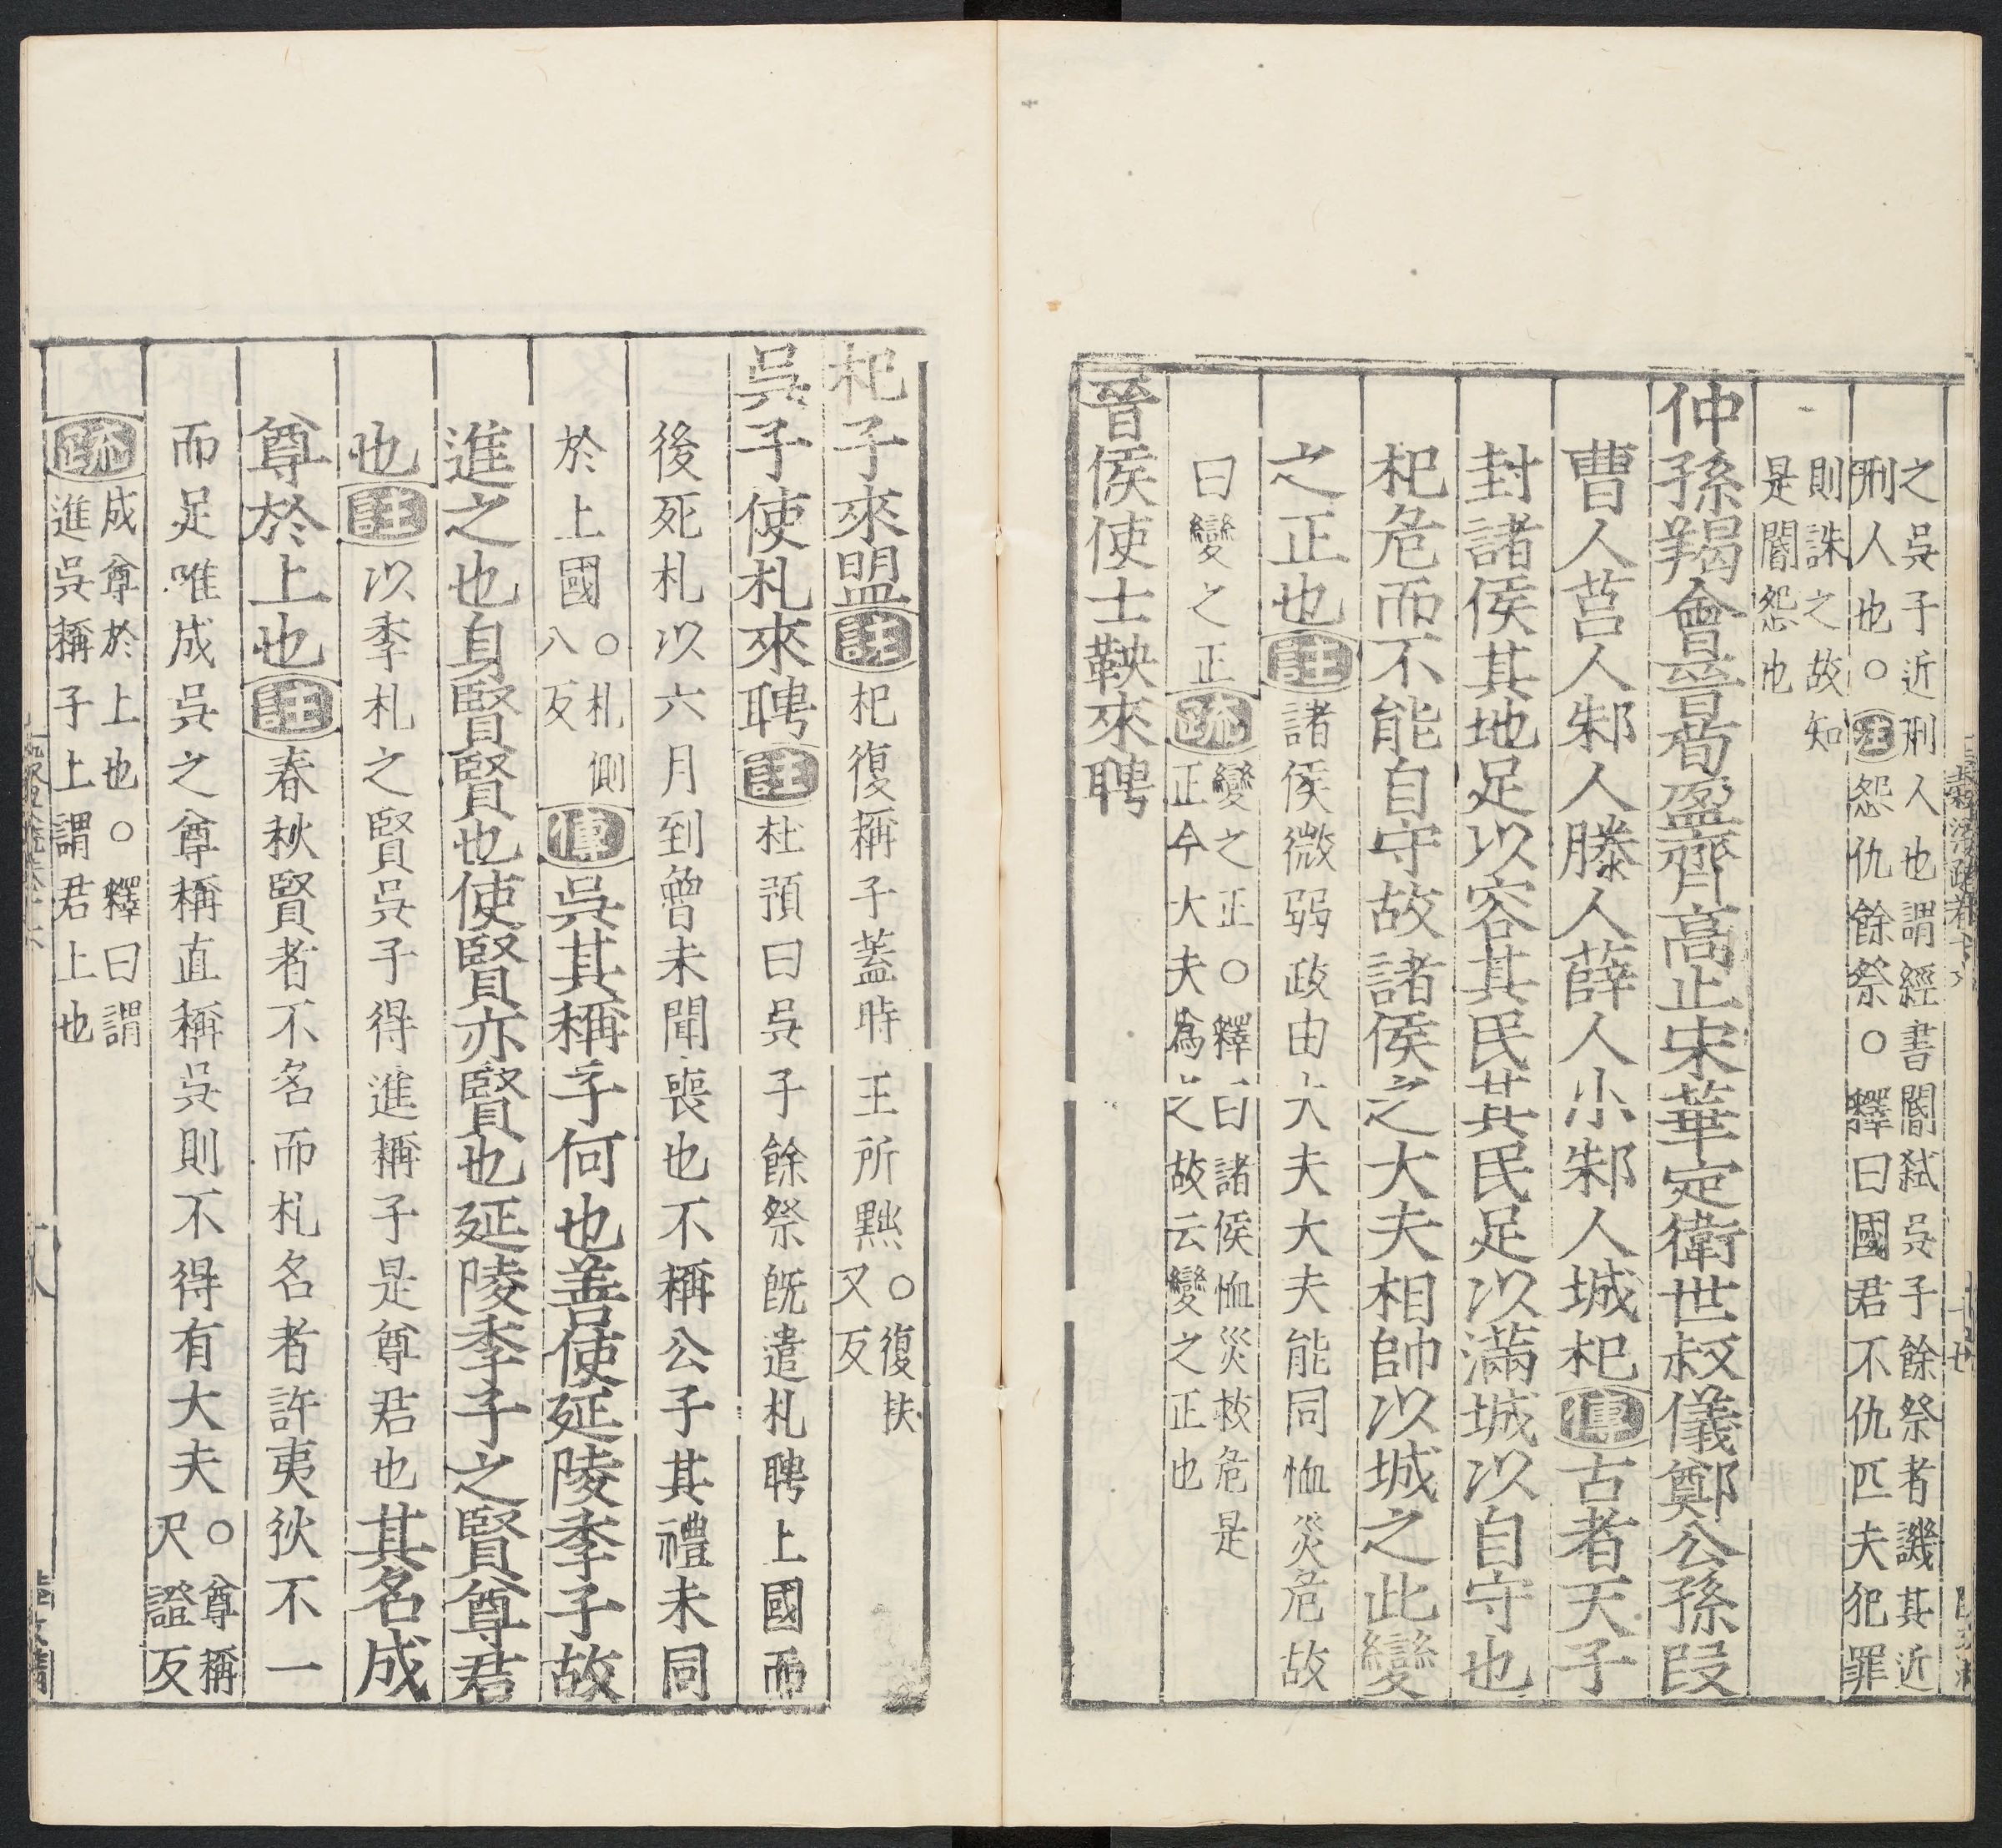 之吳子近刑人也謂經書閽弑吳子餘祭者譏其近
刑人也○注怨仇餘祭○釋曰國君不仇匹夫犯罪
則誅之故知
是閽怨也
仲孫羯會晉荀盈齊高止宋華定衛世叔儀鄭公孫段
曹人莒人邾人滕人薛人小邾人城杞傳古者天子
封諸侯其地足以容其民其民足以滿城以自守也
杞危而不能自守故諸侯之大夫相帥以城之此變
之正也註諸侯微弱政由大夫大夫能同恤災危故
曰變之正疏變之正○釋曰諸侯恤災救危是
正今大夫為之故云變之正也
晉侯使士鞅來聘
杞子來盟註杞復稱子蓋時王所黜○復扶
又反
吳子使札來聘註杜預曰吳子餘祭既遣札聘上國而
後死札以六月到魯未聞喪也不稱公子其禮未同
於上國○札側
八反傳吳其稱子何也善使延陵季子故
進之也身賢賢也使賢亦賢也延陵季子之賢尊君
也註以季札之賢吳子得進稱子是尊君也其名成
尊於上也註春秋賢者不名而札名者許夷狄不一
而足唯成吳之尊稱直稱吳則不得有大夫○尊稱
尺證反
疏成尊於上也○釋曰謂
進吳稱子上謂君上也